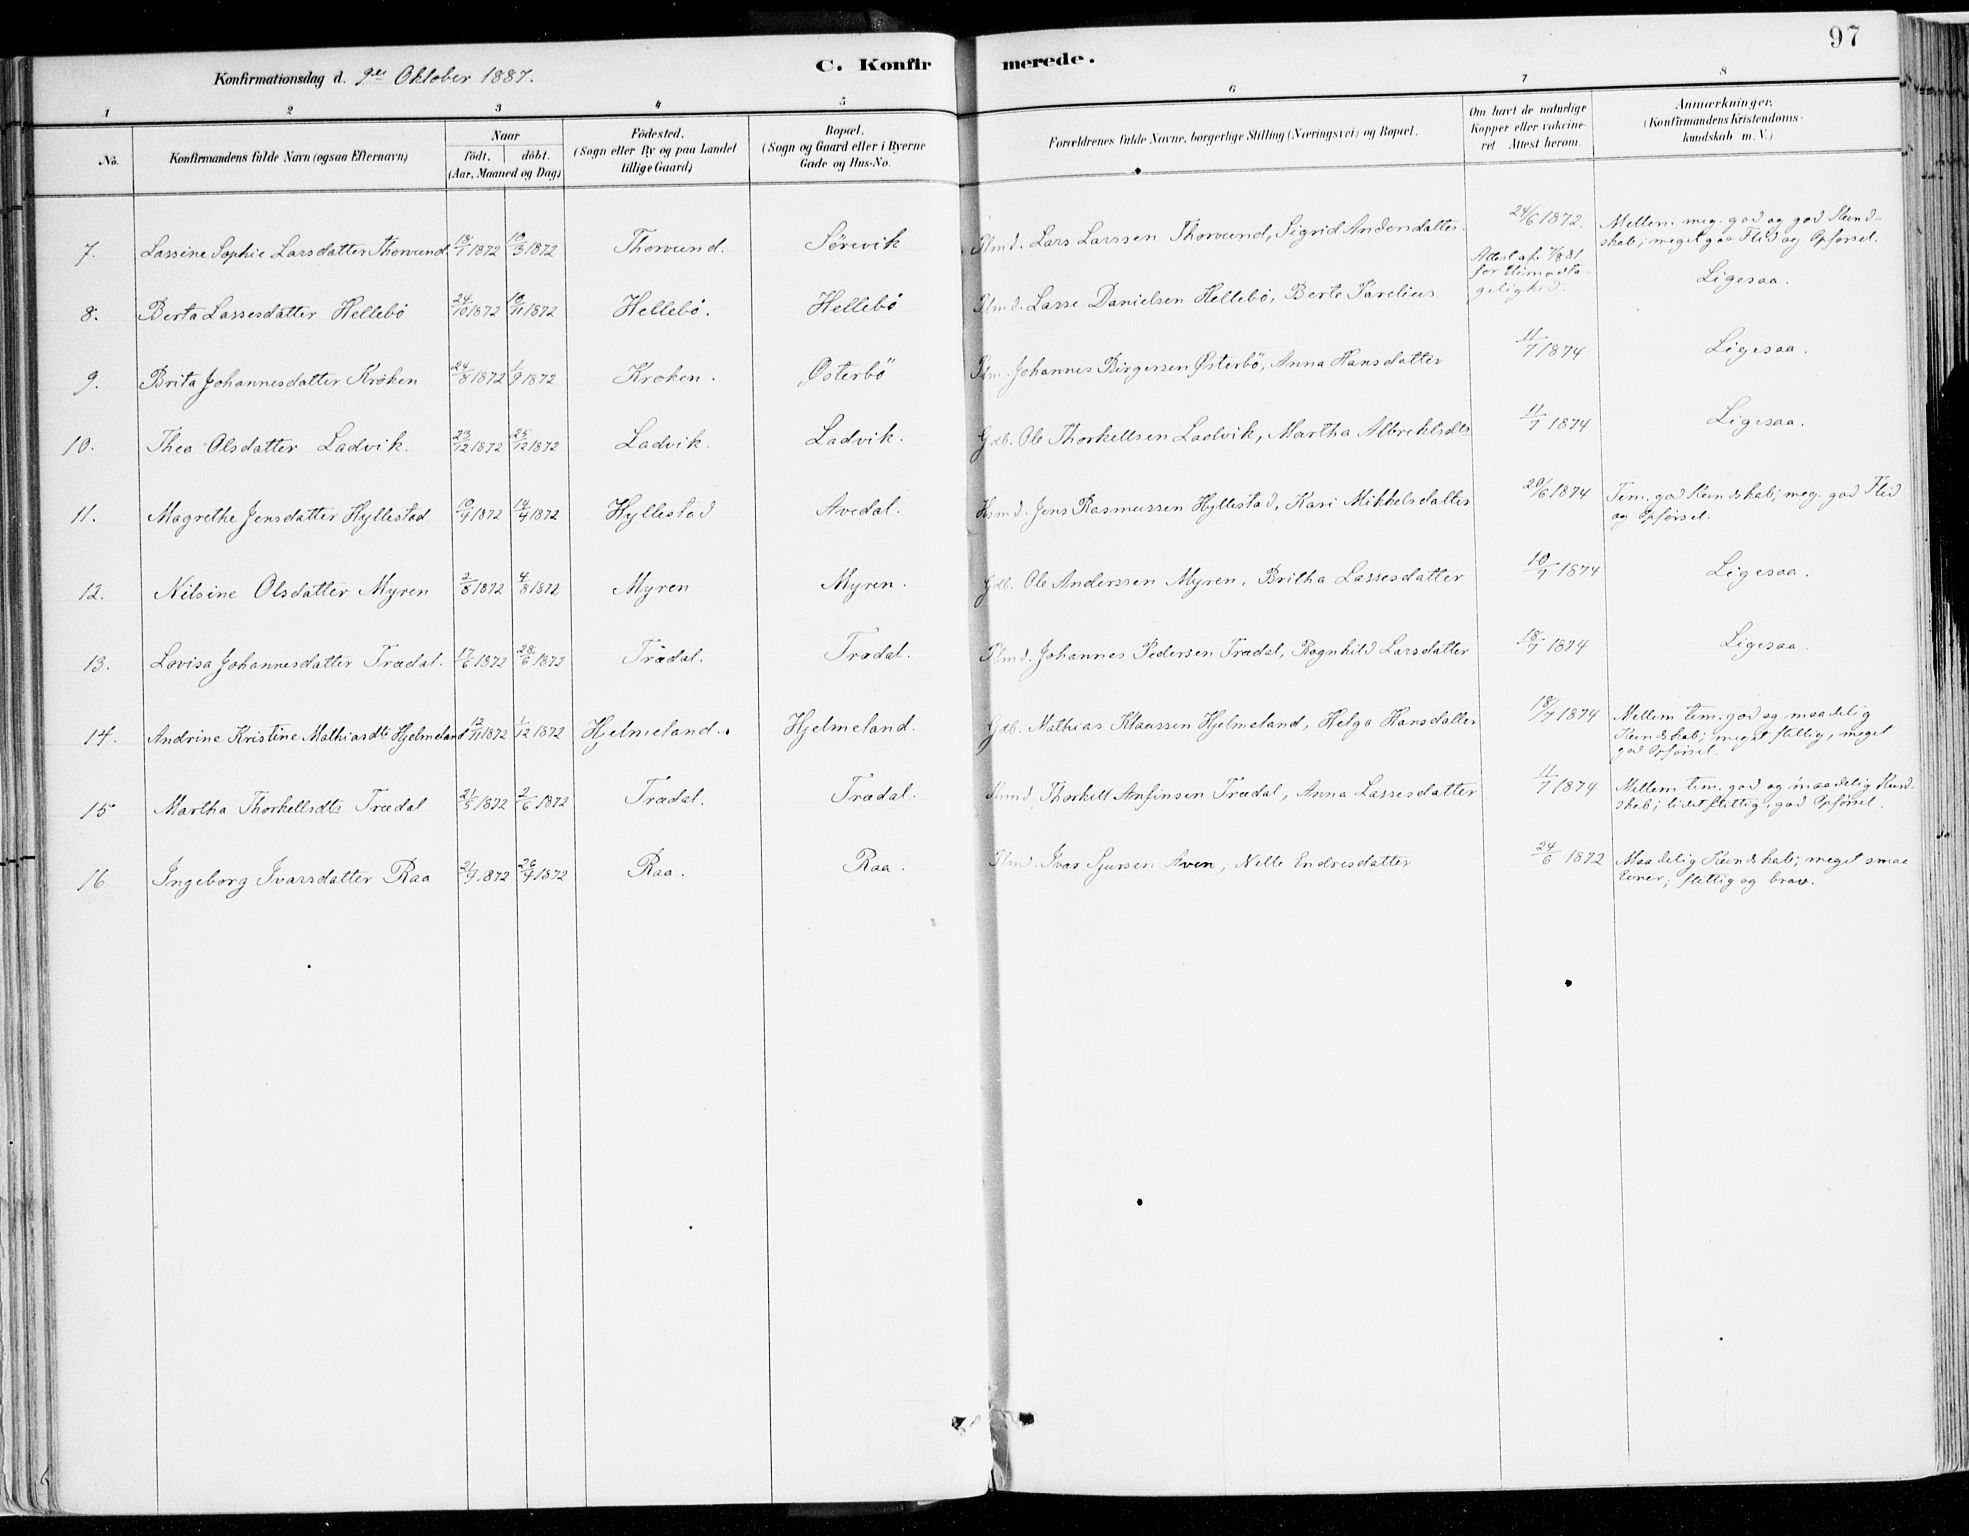 97
Konfirmationsdag d. 9de Oktober 1887.
C. Konfirmerede.
1 2 3 4 5 6 7 8
No.
Konfirmandens fulde Navn (ogsaa Efternavn)
Naar
födt. döbt.
(Aar, Maaned og Dag)
Födested.
(Sogn eller By og paa Landet
tillige Gaard)
Bopæl.
(Sogn og Gaard eller i Byerne
Gade og Hus-No.
Forældrenes fulde Navne, borgerlige Stilling (Næringsvei) og Bopæl.
Om havt de naturlige
Kopper eller vakcine-
ret Attest herom.
Anmærkninger,
(Konfirmandens Kristendoms-
kundskab m. V.)
7. Lassine Sophie Larsdatter Thorvund 18/1 1872 10/3 1872 Thorvund. Sörevik Plmd. Lars Larssen Thorvund, Sigrid Andersdatter 24/6 1872. Mellem meg. god og god Kund-
skab; meget god Flid og Opförsel.
8. Berta Lassesdatter Hellebö 24/10 1872 10/11 1872 Hellebö. Hellebö Plmd. Lasse Danielsen Hellebö, Berte Parelius Attest af 7/8 81
for Uimodta-
gelighed. Ligesaa.
9. Brita Johannesdatter Kroken 24/8 1872 1/9 1872 Kroken. Österbö Plm. Johannes Birgersen Österbö, Anna Hansdatter 11/7 1874 Ligesaa.
10. Thea Olsdatter Ladvik. 23/12 1872 25/12 1872 Ladvik. Ladvik. Gdb. Ole Thorkellsen Ladvik, Martha Albrektsdtr 11/7 1874 Ligesaa.
11. Magrethe Jensdatter Hyllestad 10/4 1872 14/4 1872 Hyllestad Avedal. Hsmd. Jens Rasmussen Hyllestad, Kari Mikkelsdatter 20/6 1874 Tem. god Kundskab; meg. god Flid
og Opförsel.
12. Nilsine Olsdatter Myren 2/8 1872 4/8 1872 Myren Myren. Gdb. Ole Anderssen Myren, Britha Lassesdatter 10/7 1874 Ligesaa.
13. Lovisa Johannesdatter Trædal. 17/6 1872 28/6 1872 Trædal. Trædal. Plmd. Johannes Pedersen Trædal, Ragnhild Larsdatter 18/7 1874 Ligesaa.
14. Andrine Kristine Mathiasdtr Hjelmeland 12/11 1872 1/12 1872 Hjelmeland. Hjelmeland. Gdb. Mathias Klaussen Hjelmeland, Helga Hansdatter 18/7 1874 Mellem tem. god og maadelig
Kundskab; meget flittig, meget
god Opförsel.
15 Martha Thorkellsdtr Trædal 21/5 1872 2/6 1872 Trædal. Trædal. Thorkell Anfinsen Trædal, Anna Lassesdatter 11/7 1874 Mellem tem. god og maadelig Kund-
skab; lidet flittig, god Opförsel.
16. Ingeborg Ivarsdatter Raa 1872 1872 Raa. Raa. Plmd. Ivar Sjursen Aven, Nelle Endresdatter 24/6 1872 Maadelig Kundskab; meget smaa
Evner; flittig og brav.